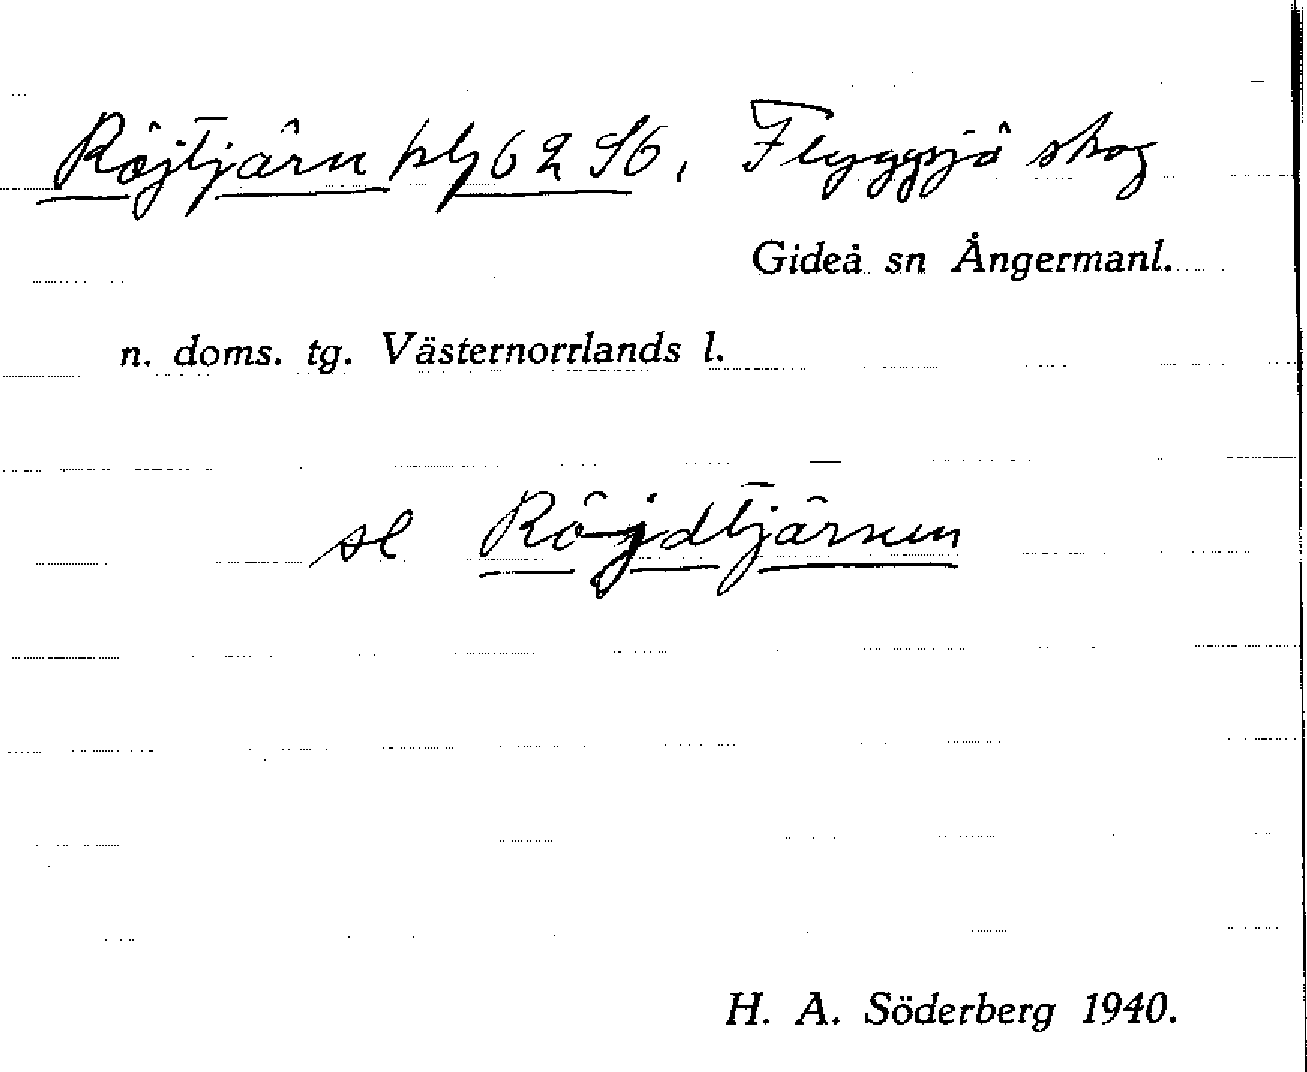 Röjtjärn blg 62 S6, Flyggsjö skog
Gideå sn Ångermanl.
n. doms. tg. Västernorrlands l.
se Röjdtjärnen
H. A. Söderberg 1940.